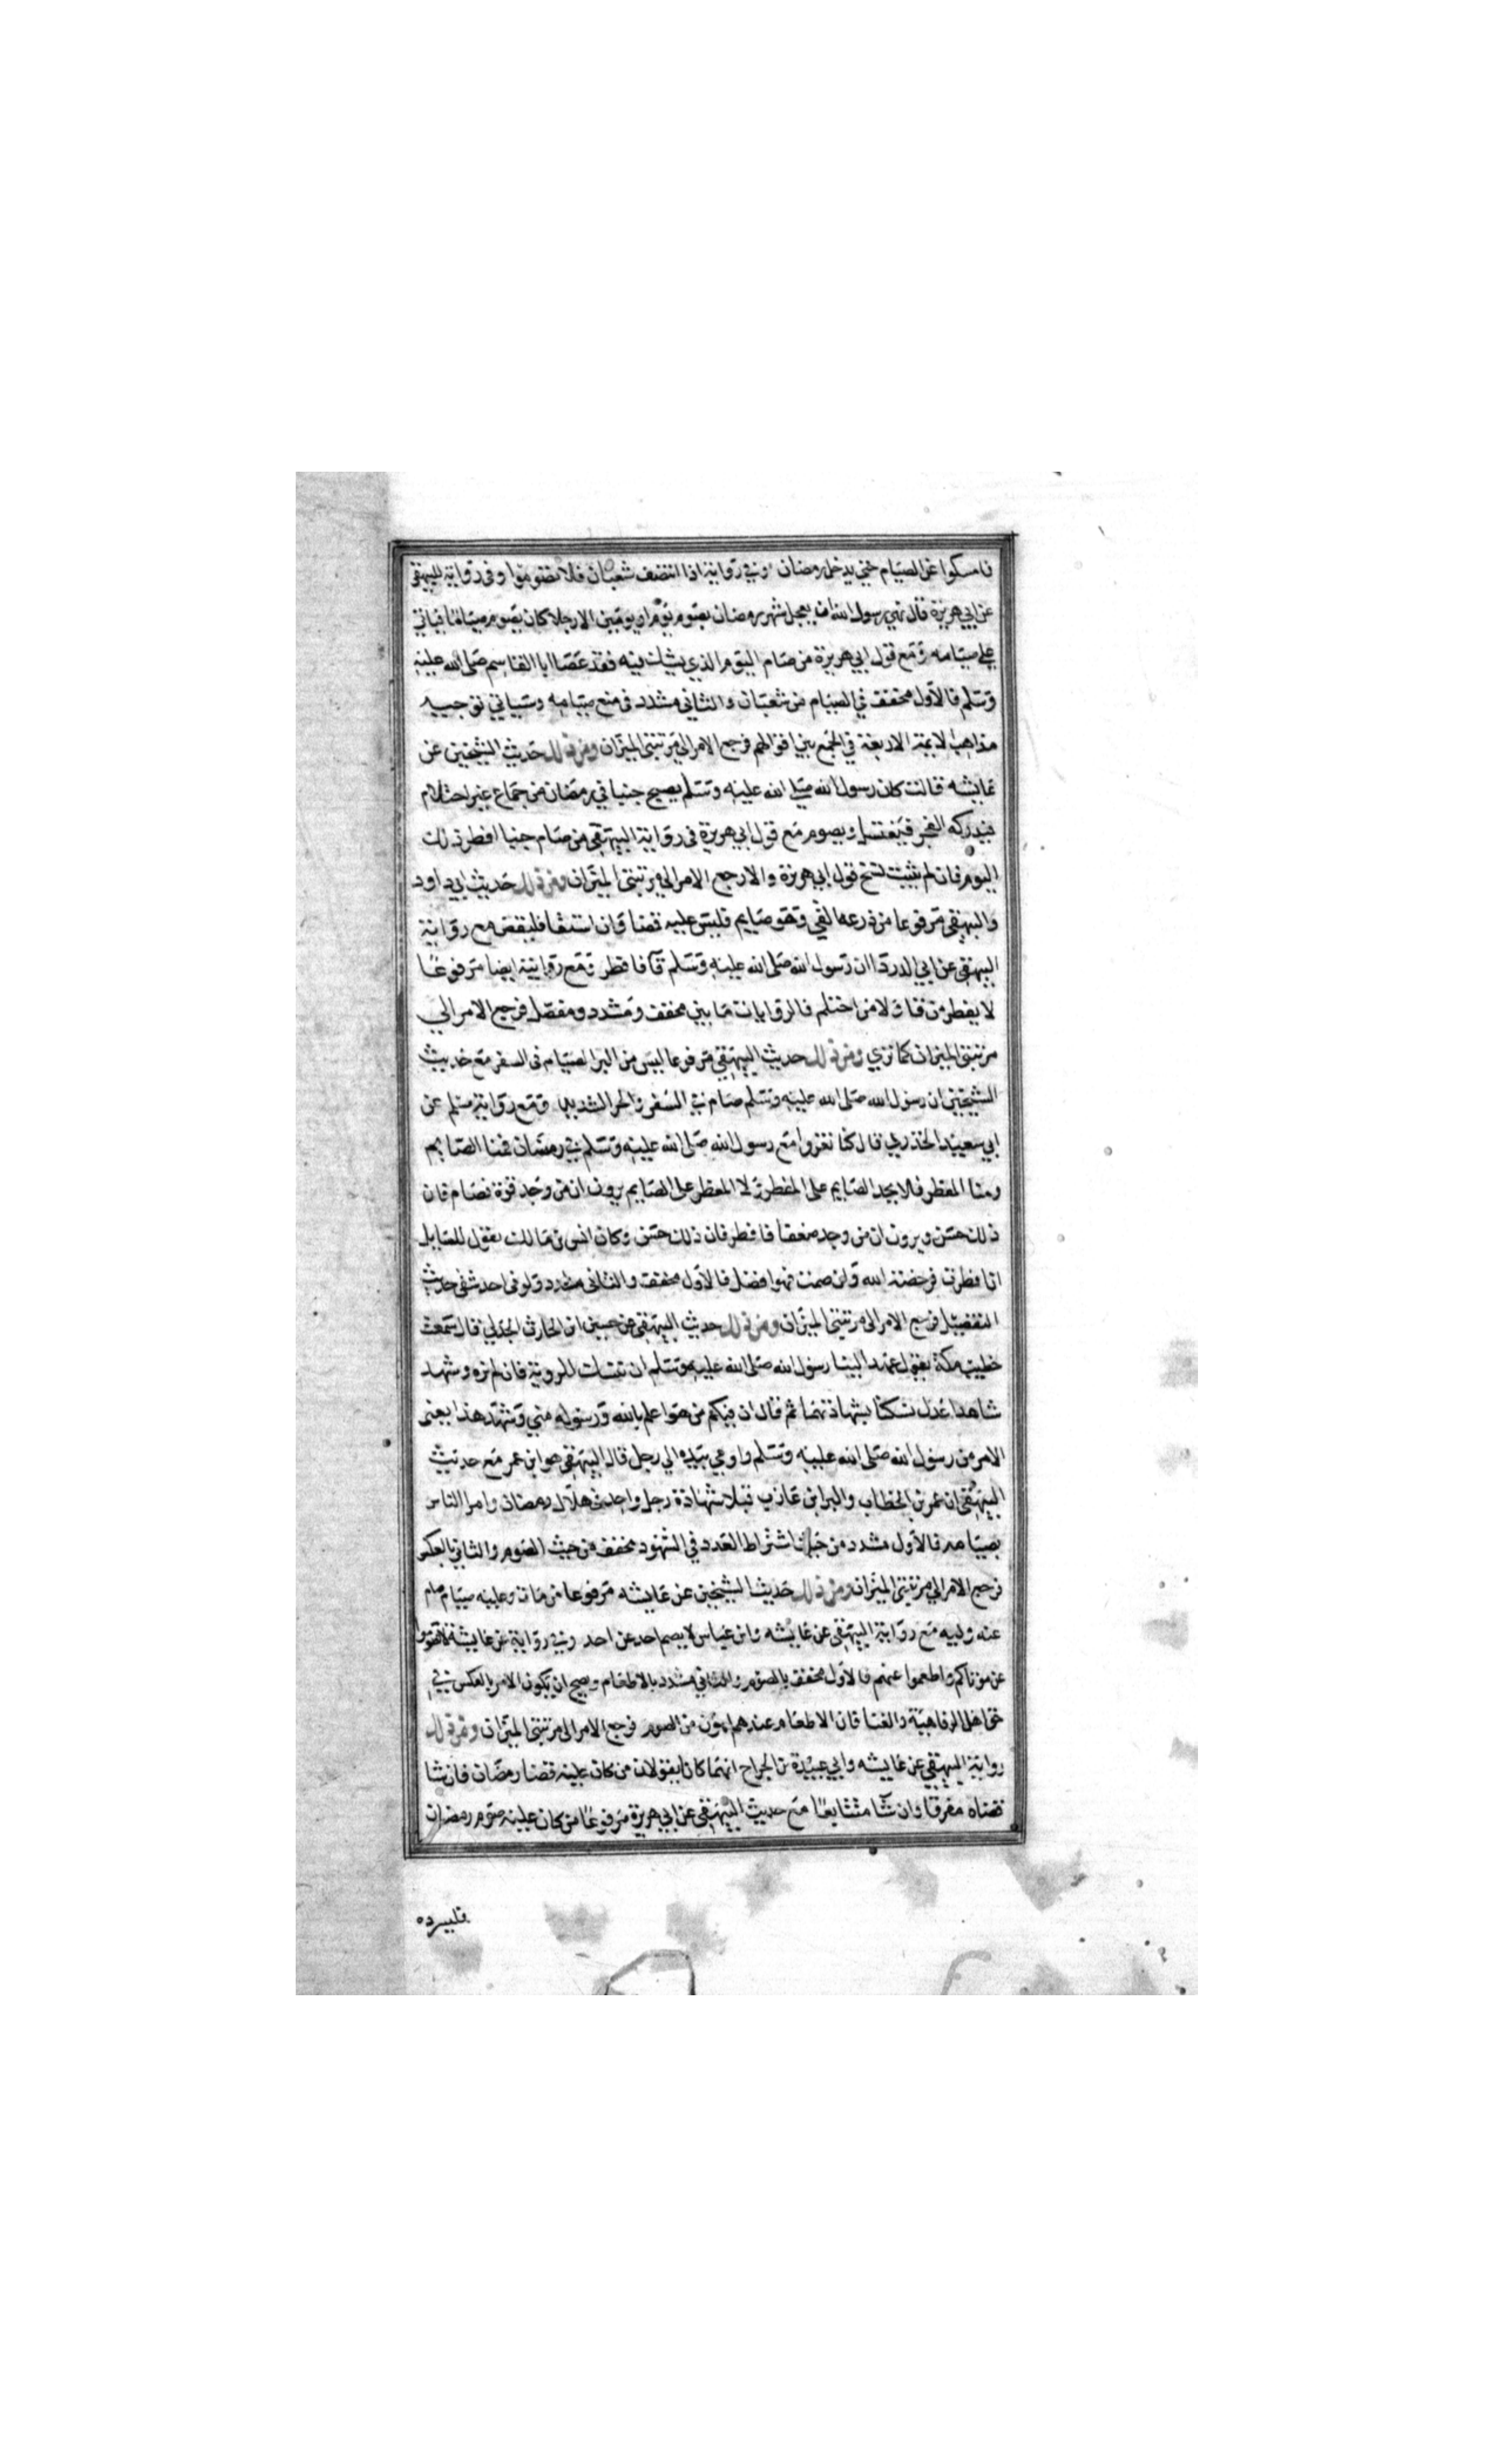 فامسكوا عن الصيام حتى يدخل رمضان وفي رواية اذا انتصف شعبان فلا تصوموا وفي رواية للبيهقي
عن ابي هريزة قال نهى رسول الله ان يعجل شهر رمضان بصوم يوم او يومين الا رجلا كان يصوم صياما فياتي
على صيامه ومع قول ابي هريرة من صام اليوم الذي يشك فيه فقد عصا ابا القاسم صلى الله عليه
وسلم فالاول مخفف في الصيام من شعبان والثاني مشدد في منع صيامه وسياتي توجيه
مذاهب الايمة الاربعة في الجمع بين اقوالهم فرجع الامر الي مرتبتي الميزان ومن ذلك حديث الشيخين عن
عايشه قالت كان رسول الله صلى الله عليه وسلم يصبح جنبا في رمضان من جماع غير احتلام
فيدركه الفجر فيغتسل ويصوم مع قول ابي هريرة في رواية البيهقي من صام جنبا افطر ذلك
اليوم فان لم يثبت نسخ قول ابي هريرة والا رجع الامر الي مرتبتي الميزان ومن ذلك حديث ابي داود
والبيهقي مرفوعا من ذرعه القي وهو صايم فليس عليه قضا وان استقا فليقض مع رواية
البيهقي عن ابي الدردا ان رسول الله صلى الله عليه وسلم قآ فافطر ومع روايته ايضا مرفوعا
لا يفطر من قا ولا من احتلم فالروايات ما بين مخفف ومشدد ومفصل فرجع الامر الي
مرتبتي الميزان كما تري ومن ذلك حديث البيهقي مرفوعا ليس من البر الصيام في السفر مع حديث
الشيخين ان رسول الله صلى الله عليه وسلم صام في السفر في الحر الشديد ومع رواية مسلم عن
ابي سعيد الخذري قال كنا نغزوا مع رسول الله صلى الله عليه وسلم في رمضان فمنا الصايم
ومنا المفطر فلا يجد الصايم على المفطر ولا المفطر على الصايم يرون ان من وجد قوة فصام فان
ذلك حسن ويرون ان من وجد ضعفا فافطر فان ذلك حسن وكان انس بن مالك يقول للسايل
ان افطرت فرخصة الله وان صمت فهو افضل فالاول مخفف والثاني مشدد ولو في احد شقي حديث
التفصيل فرجع الامر الى مرتبتي الميزان ومن ذلك حديث البيهقي عن حسين ابن الحارث الجدلي قال سمعت
خطيب مكة يقول عهد الينا رسول الله صلى الله عليه وسلم ان ننسك للروية فان لم نره وشهد
شاهدا عدل نسكنا بشهادتهما ثم قال ان فيكم من هو اعلم بالله ورسوله مني وشهد هذا يعني
الامر من رسول الله صلى الله عليه وسلم واومي بيده الي رجل قال البيهقي هو ابن عمر مع حديث
البيهقي ان عمر بن الخطاب والبرا ابن عازب قبلا شهادة رجل واحد في هلال رمضان وامرا الناس
بصيامه فالاول مشدد من حيث اشتراط العدد في الشهود مخفف من حيث الصوم والثاني بالعكس
فرجع الامر الي مرتبتي الميزان ومن ذلك حديث الشيخين عن عايشه مرفوعا من مات وعليه صيام صام
عنه وليه مع رواية البيهقي عن عايشه وابن عباس لا يصم احد عن احد وفي رواية عن عايشة لا تصوموا
عن موتاكم واطعموا عنهم فالاول مخفف بالصوم والثاني مشدد بالاطعام ويصح ان يكون الامر بالعكس في
حق اهل الرفاهية والغنا فان الاطعام عندهم اهون من الصوم فرجع الامر الى مرتبتي الميزان ومن ذلك
رواية البيهقي عن عايشه وابي عبيدة بن الجراح انهما كانا يقولان من كان عليه قضا رمضان فان شا
قضاه مفرقا وان شآ متتابعا مع حديث البيهقي عن ابي هريرة مرفوعا من كان عليه صوم رمضان
فليسرده